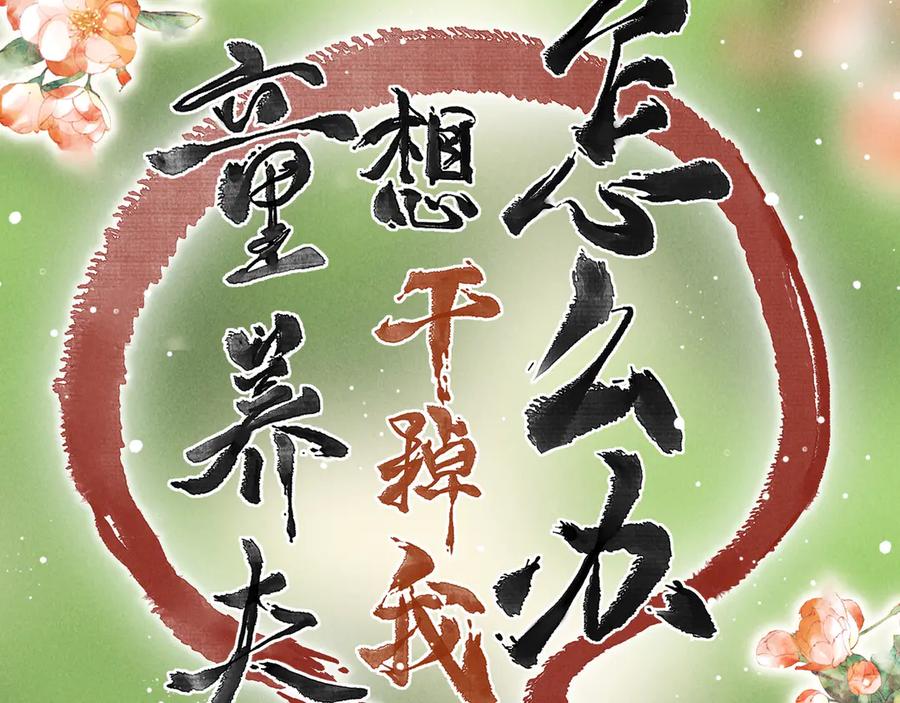 童养夫
想干掉我
怎么办